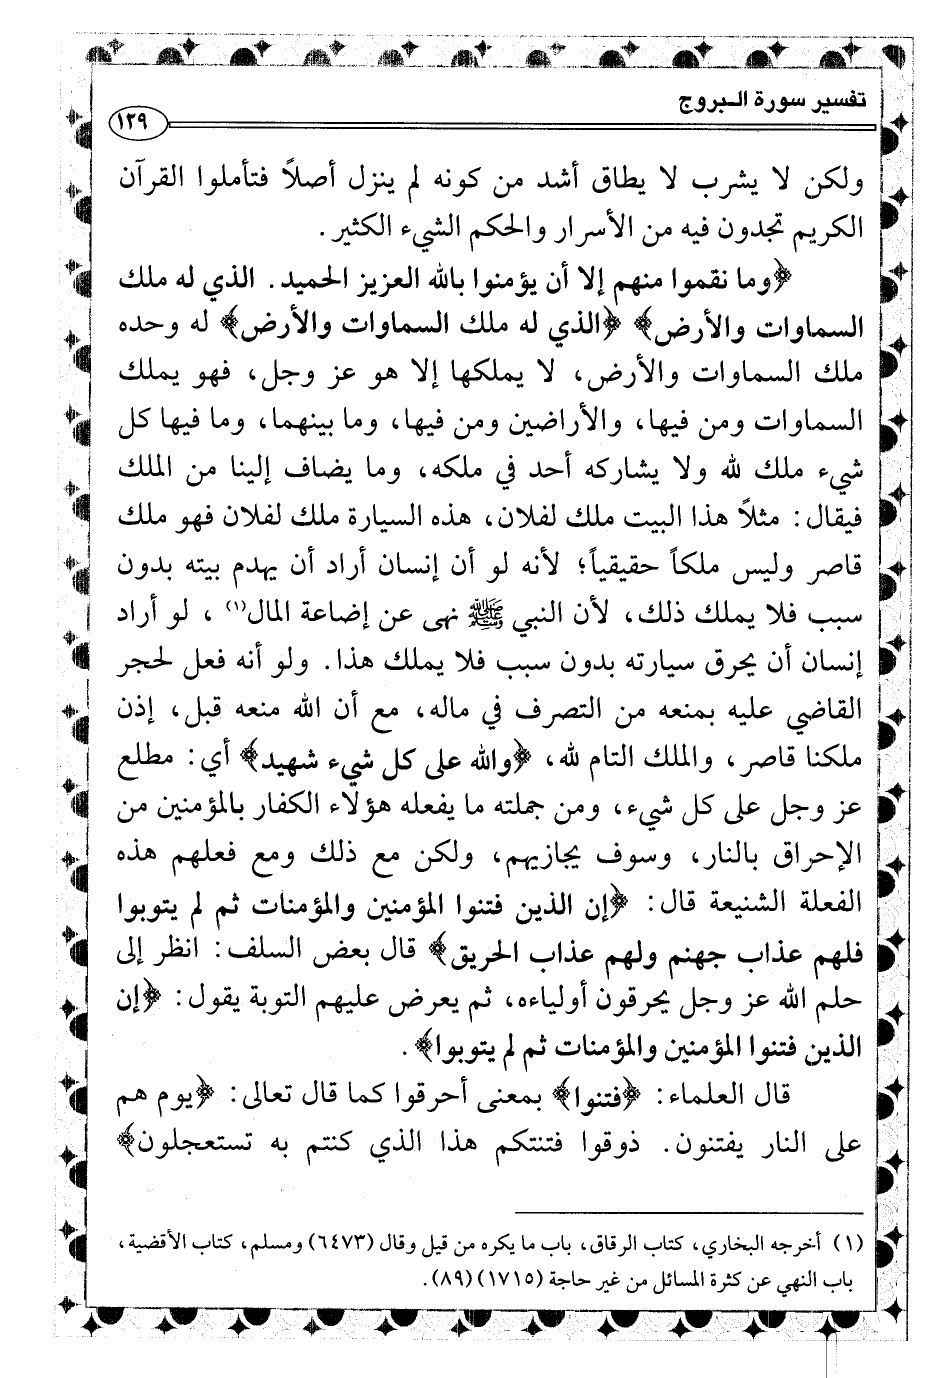 تفسير سورة البروج
١٢٩
ولكن لا يشرب لا يطاق أشد من كونه لم ينزل أصلاً فتأملوا القرآن
الكريم تجدون فيه من الأسرار والحكم الشيء الكثير.
﴿وما نقموا منهم إلا أن يؤمنوا بالله العزيز الحميد. الذي له ملك
السماوات والأرض﴾ ﴿الذي له ملك السماوات والأرض﴾ له وحده
ملك السماوات والأرض، لا يملكها إلا هو عز وجل، فهو يملك
السماوات ومن فيها، والأراضين ومن فيها، وما بينهما، وما فيها كل
شيء ملك لله ولا يشاركه أحد في ملكه، وما يضاف إلينا من الملك
فيقال: مثلاً هذا البيت ملك لفلان، هذه السيارة ملك لفلان فهو ملك
قاصر وليس ملكاً حقيقياً؛ لأنه لو أن إنسان أراد أن يهدم بيته بدون
سبب فلا يملك ذلك، لأن النبي ﷺ نهى عن إضاعة المال(١)، لو أراد
إنسان أن يحرق سيارته بدون سبب فلا يملك هذا. ولو أنه فعل لحجر
القاضي عليه بمنعه من التصرف في ماله، مع أن الله منعه قبل، إذن
ملكنا قاصر، والملك التام لله، ﴿والله على كل شيء شهيد﴾ أي: مطلع
عز وجل على كل شيء، ومن جملته ما يفعله هؤلاء الكفار بالمؤمنين من
الإحراق بالنار، وسوف يجازيهم، ولكن مع ذلك ومع فعلهم هذه
الفعلة الشنيعة قال: ﴿إن الذين فتنوا المؤمنين والمؤمنات ثم لم يتوبوا
فلهم عذاب جهنم ولهم عذاب الحريق﴾ قال بعض السلف: انظر إلى
حلم الله عز وجل يحرقون أولياءه، ثم يعرض عليهم التوبة يقول: ﴿إن
الذين فتنوا المؤمنين والمؤمنات ثم لم يتوبوا﴾.
قال العلماء: ﴿فتنوا﴾ بمعنى أحرقوا كما قال تعالى: ﴿يوم هم
على النار يفتنون. ذوقوا فتنتكم هذا الذي كنتم به تستعجلون﴾
(١) أخرجه البخاري، كتاب الرقاق، باب ما يكره من قيل وقال (٦٤٧٣) ومسلم، كتاب الأقضية،
باب النهي عن كثرة المسائل من غير حاجة (١٧١٥) (٨٩).